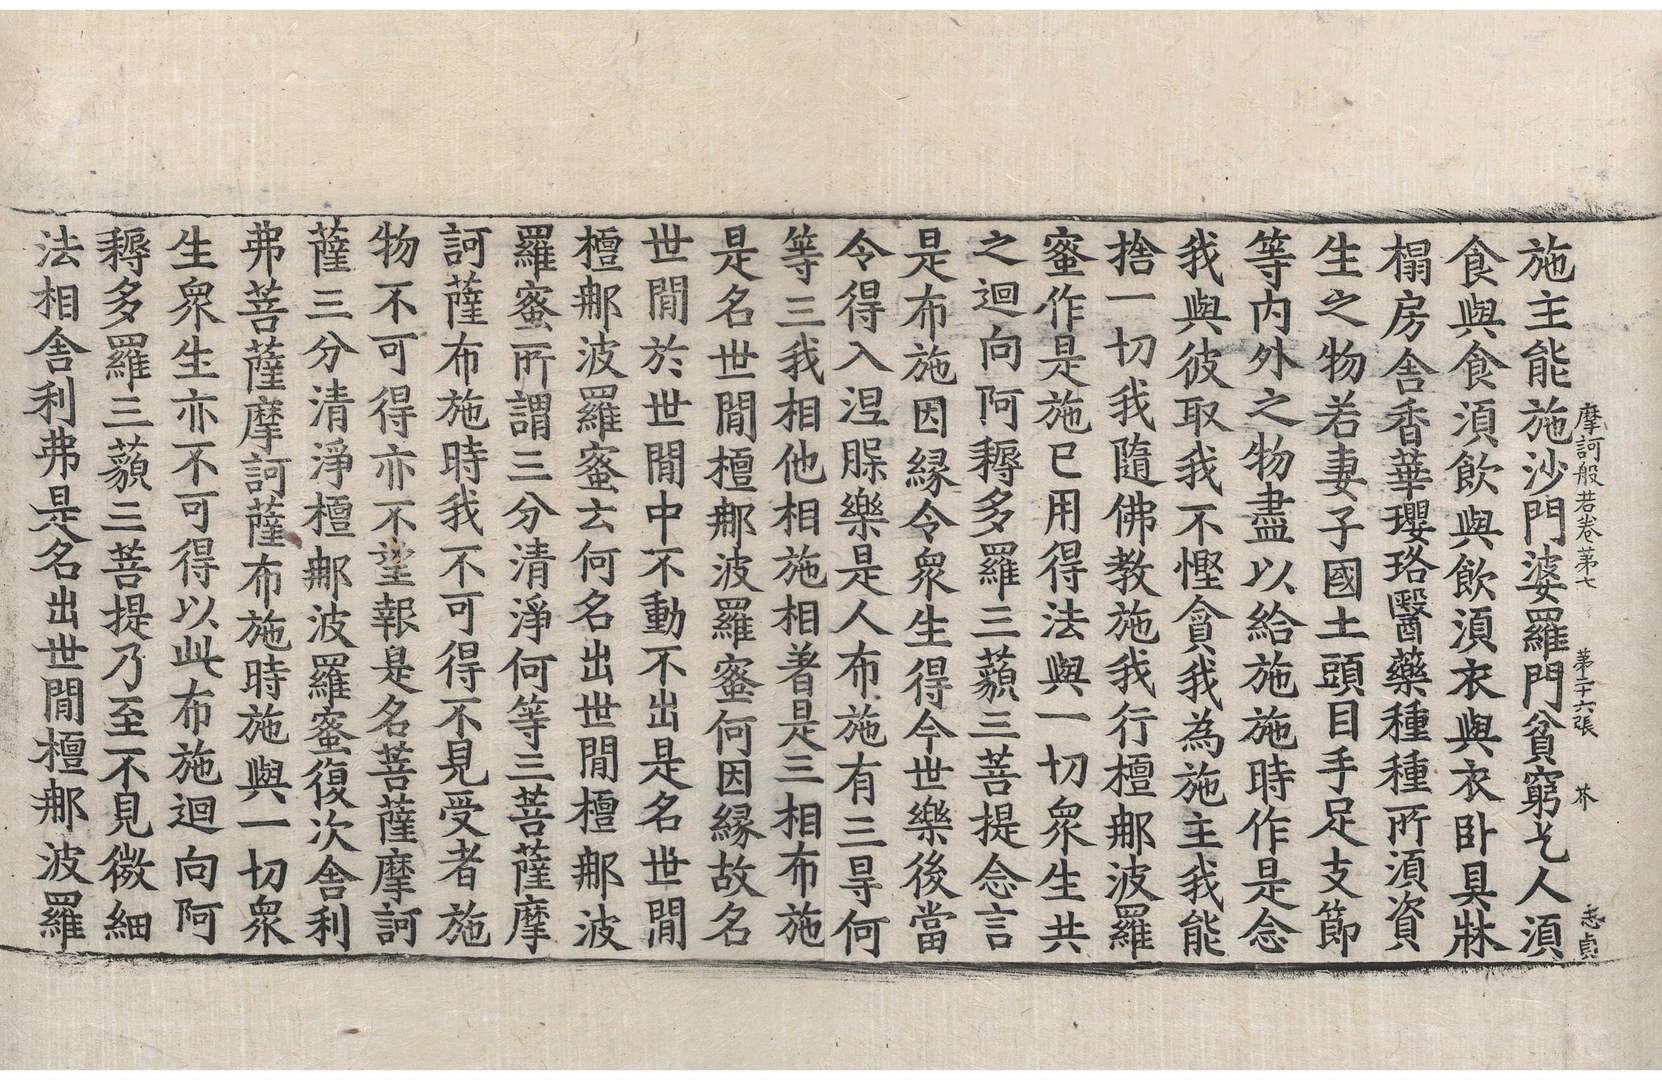 摩訶般若卷第七 第二十六張 芥 志貞
施主能施沙門婆羅門貧窮乞人須
食與食須飲與飲須衣與衣卧具牀
榻房舍香華瓔珞醫藥種種所須資
生之物若妻子國土頭目手足支節
等内外之物盡以給施施時作是念
我與彼取我不慳貪我為施主我能
捨一切我隨佛教施我行檀𨚗波羅
蜜作是施已用得法與一切衆生共
之迴向阿耨多羅三藐三菩提念言
是布施因縁令衆生得今世樂後當
令得入涅槃樂是人布施有三㝵何
等三我相他相施相著是三相布施
是名世閒檀𨚗波羅蜜何因縁故名
世閒於世閒中不動不出是名世閒
檀𨚗波羅蜜云何名出世閒檀𨚗波
羅蜜所謂三分清淨何等三菩薩摩
訶薩布施時我不可得不見受者施
物不可得亦不望報是名菩薩摩訶
薩三分清淨檀𨚗波羅蜜復次舍利
弗菩薩摩訶薩布施時施與一切衆
生衆生亦不可得以此布施迴向阿
耨多羅三藐三菩提乃至不見微細
法相舍利弗是名出世閒檀𨚗波羅